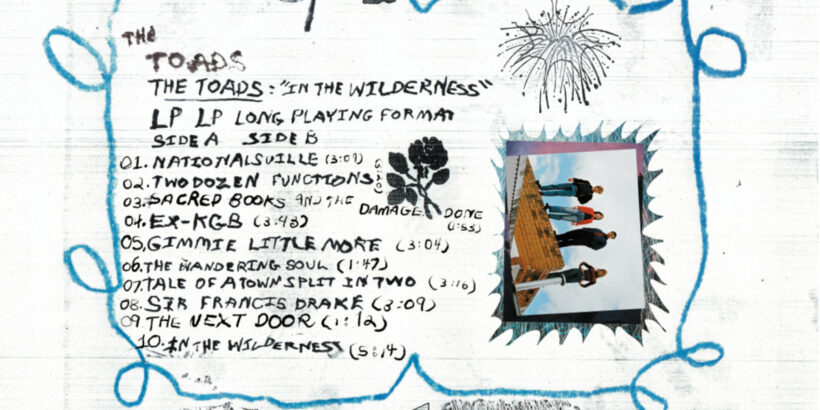 THE
TOADS
THE TOADS: "IN THE WILDERNESS"
LP LP LONG PLAYING FORMAT
SIDE A SIDE B
01. NATIONALSVILLE (3:07)
02. TWO DOZEN FUNCTIONS
03. SACRED BOOKS AND THE DAMAGE DONE (1:53)
04. EX-KGB (3:43)
05. GIMMIE LITTLE MORE (3:04)
06. THE WANDERING SOUL (1:47)
07. TALE OF A TOWN SPLIT IN TWO (3:16)
08. SIR FRANCIS DRAKE (3:09)
09. THE NEXT DOOR (1:12)
10. IN THE WILDERNESS (5:14)